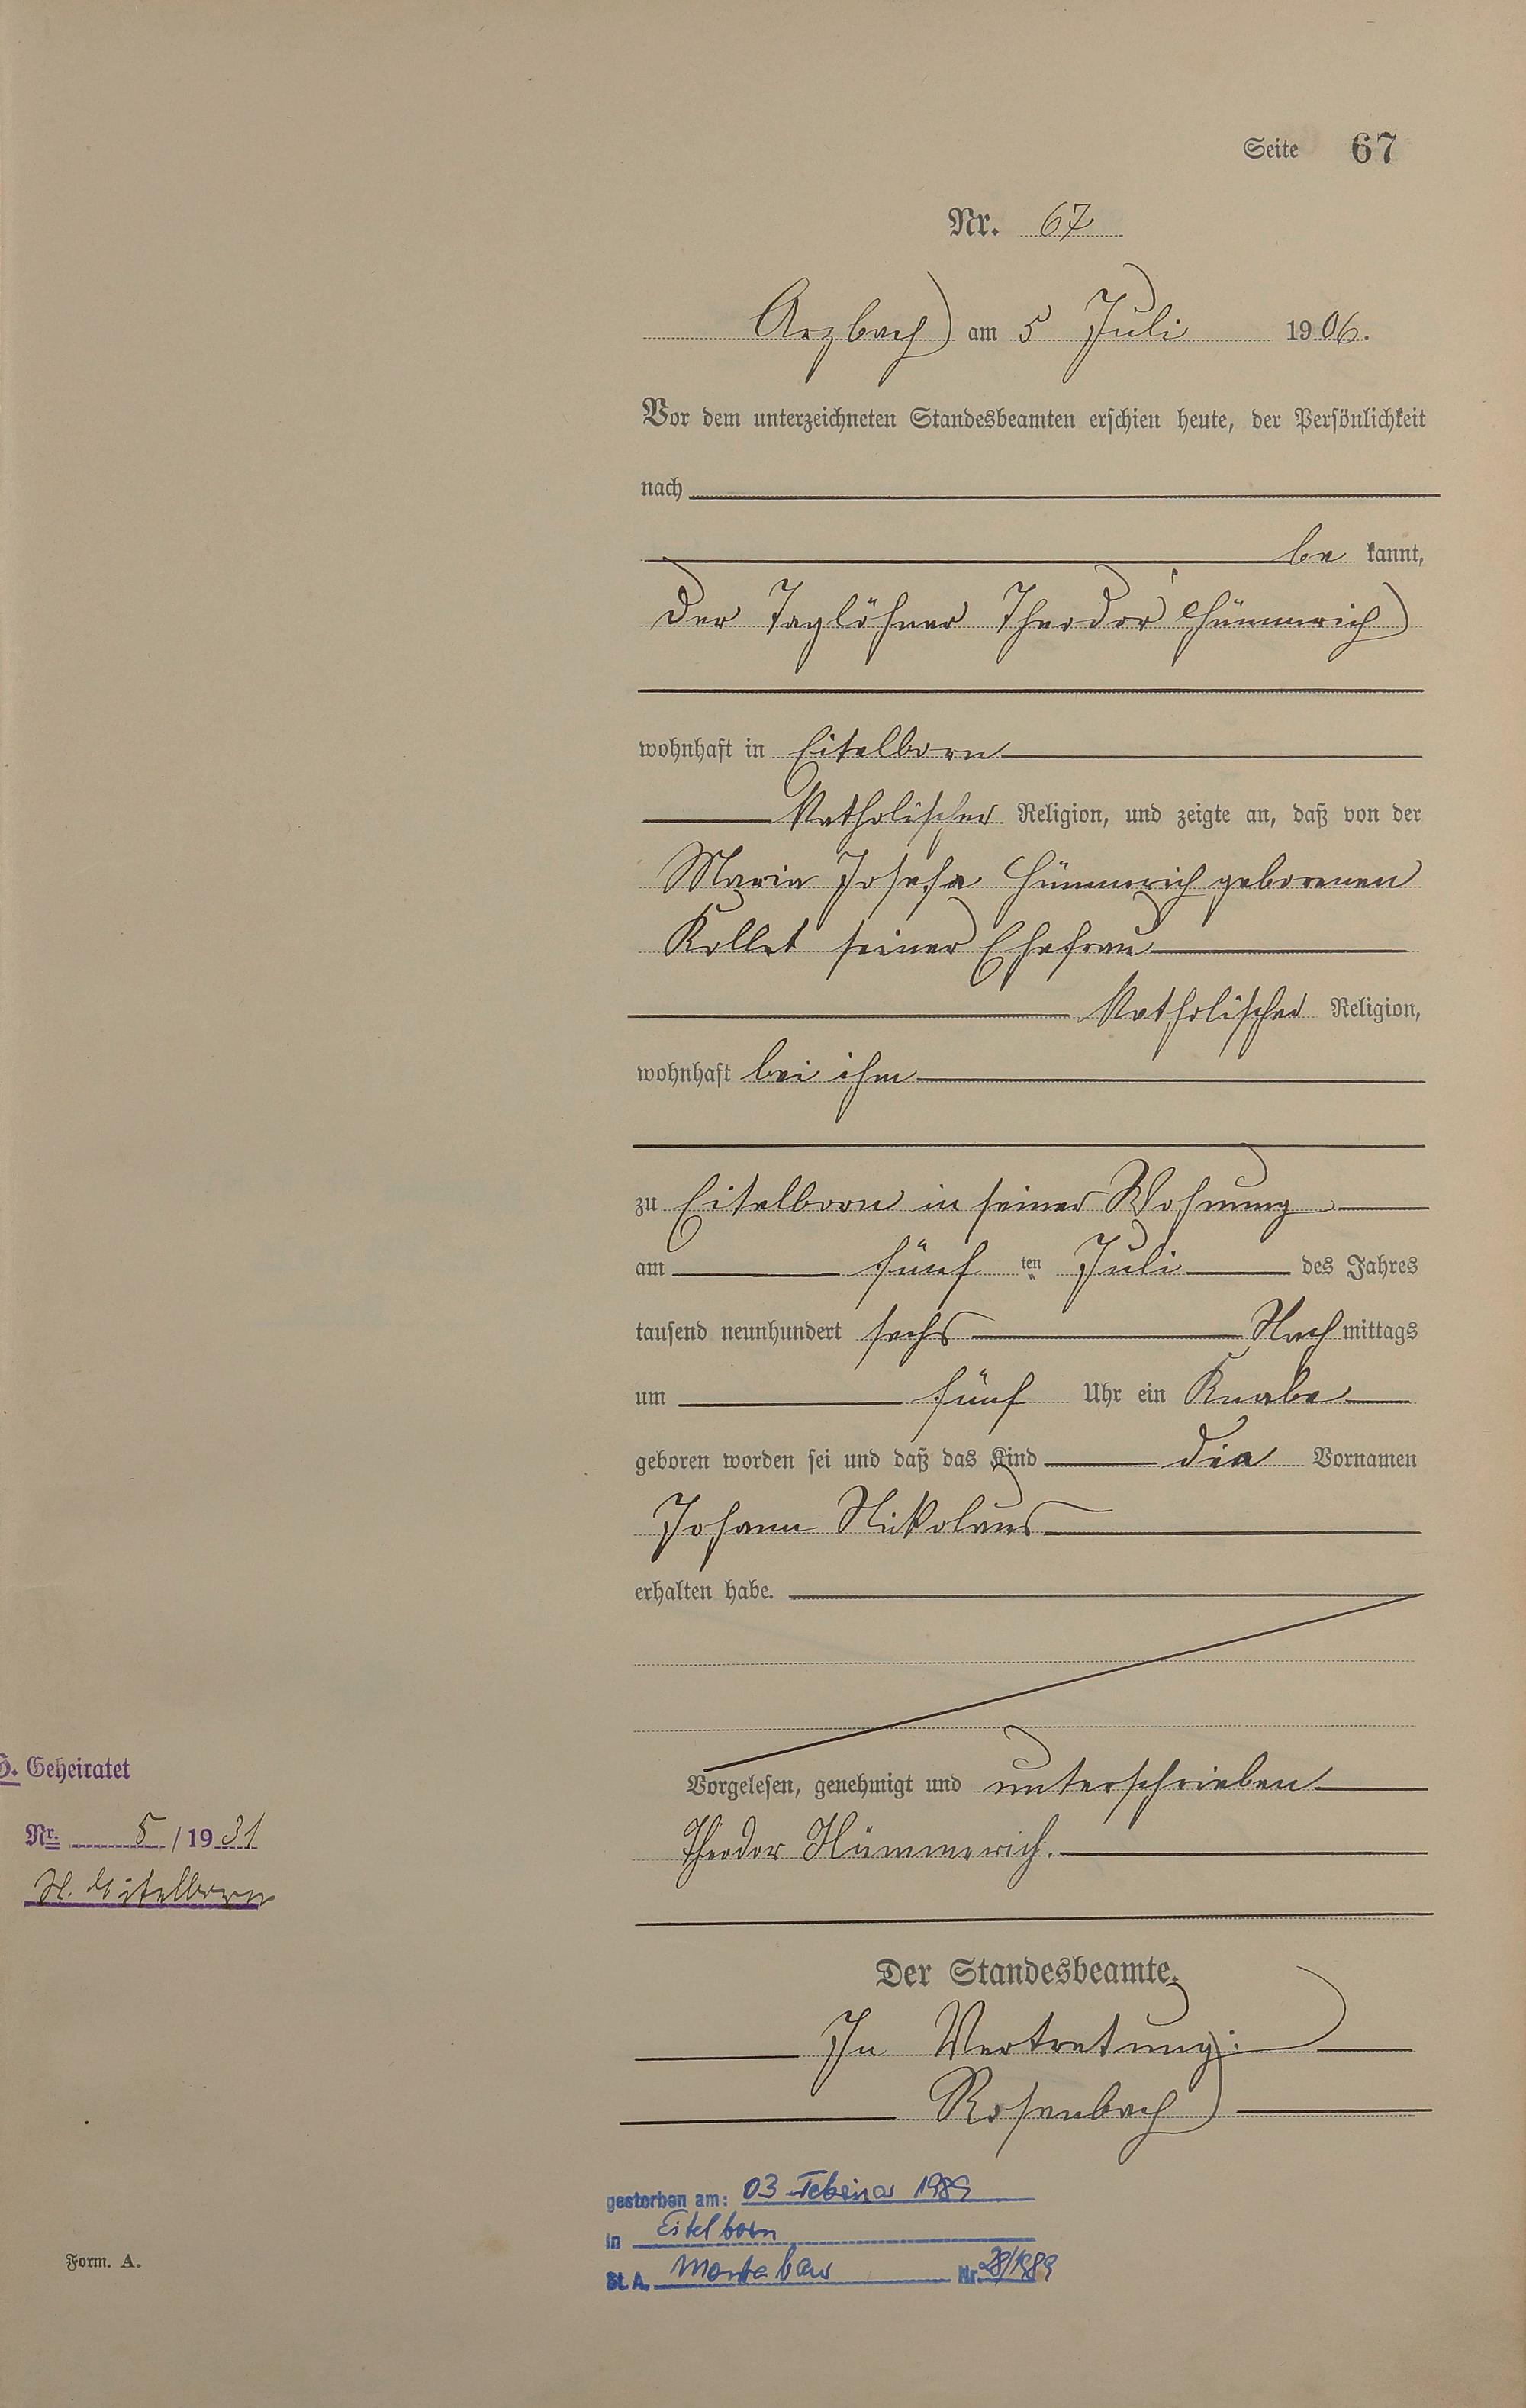 Seite 67
Nr. 67
Arzbach am 5 Juli 1906.
Vor dem unterzeichneten Standesbeamten erschien heute, der Persönlichkeit
nach
be kannt,
der Taglöhner Theodor Hümmerich
wohnhaft in Eitelborn
katholischer Religion, und zeigte an, daß von der
Maria Josefa Hümmerich geborenen
Kollet seiner Ehefrau
katholischer Religion,
wohnhaft bei ihm
zu Eitelborn in seiner Wohnung
am fünf ten Juli des Jahres
tausend neunhundert sechs Nach mittags
um fünf Uhr ein Knabe
geboren worden sei und daß das Kind die Vornamen
Johann Nikolaus
erhalten habe.
Vorgelesen, genehmigt und unterschrieben
Theodor Hümmerich.
Der Standesbeamte.
In Vertretung:
Rosenbach
gestorben am: 03 Februar 1989
in Eitelborn
St. A. Montabaur Nr. 28/1989
Geheiratet
Nr. 5 / 1931
Eitelborn
Form. A.